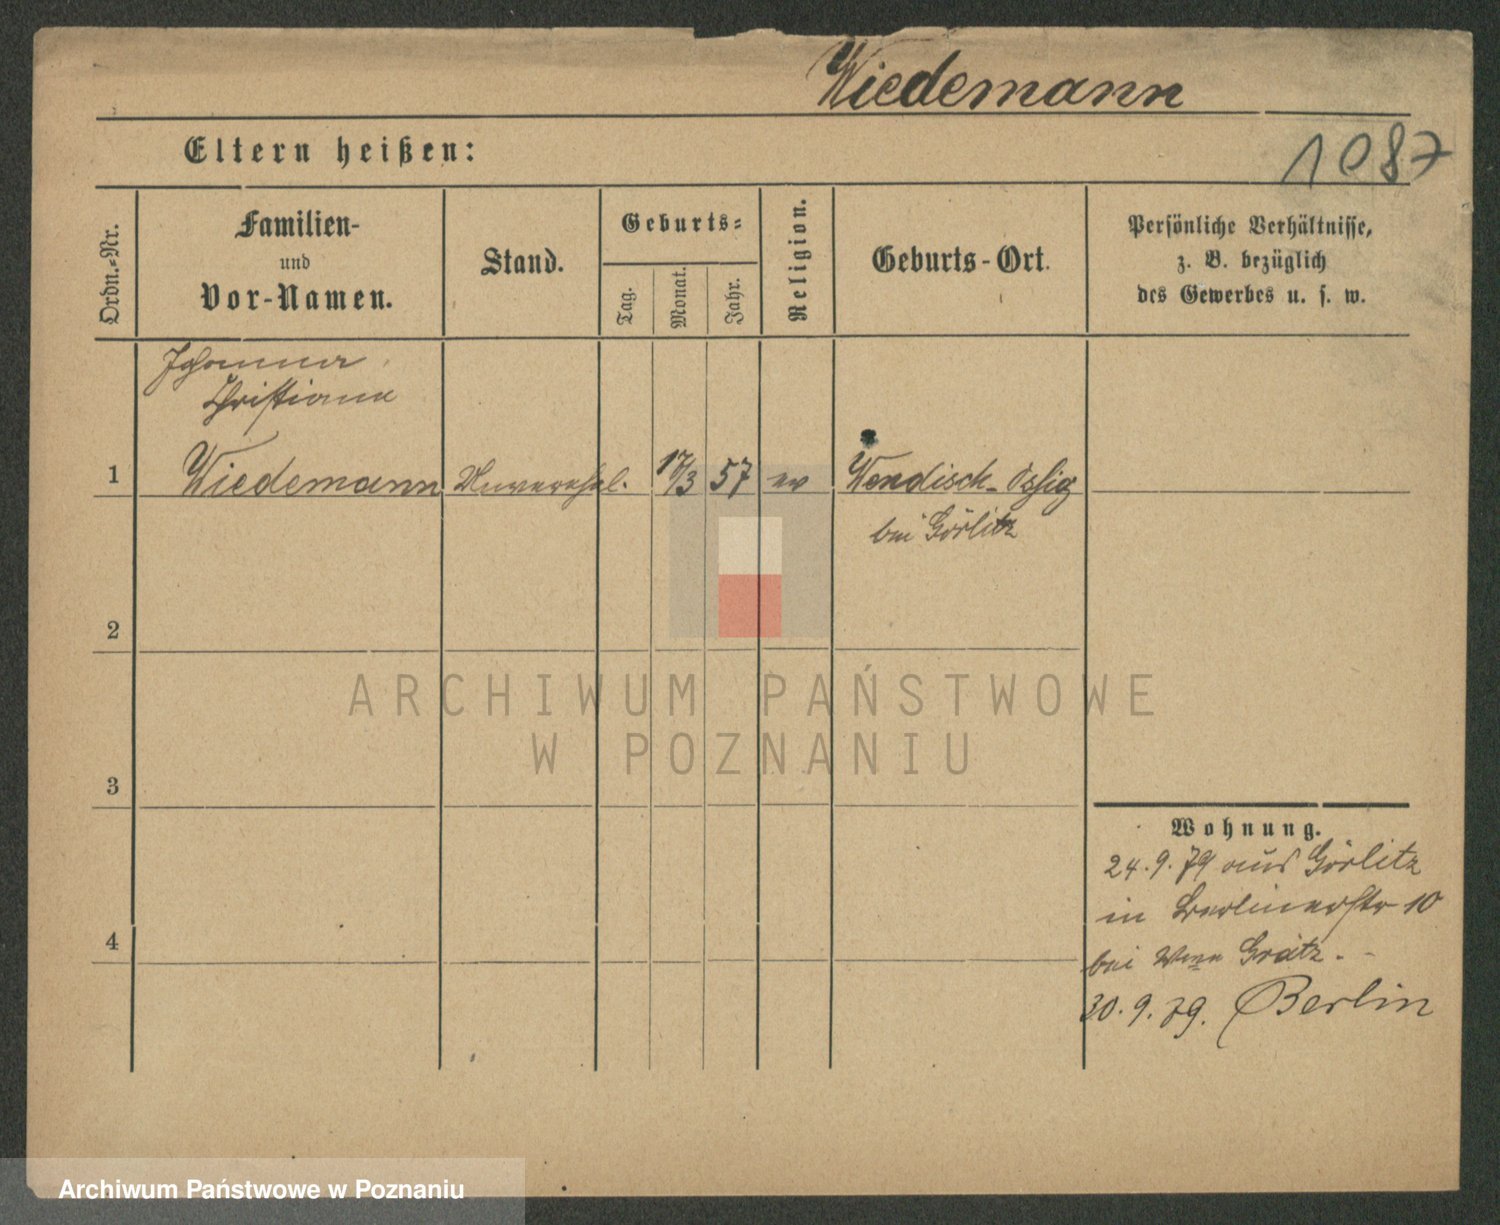 Wiedemann
Eltern heißen:
1087
Ordn.-Nr.
Familien-
und
Vor-Namen.
Stand.
Geburts-
Tag.
Monat.
Jahr.
Religion.
Geburts-Ort.
Persönliche Verhältnisse,
z. B. bezüglich
des Gewerbes u. s. w.
Johanna
Christiane
1 Wiedemann Unverehel. 17/3 57 ev Wendisch-Ossig
bei Görlitz
2
3
4
Wohnung.
24.9.79 aus Görlitz
in Berlinerstr 10
bei Wwe Grätz.
30.9.79. Berlin
ARCHIWUM PAŃSTWOWE
W POZNANIU
Archiwum Państwowe w Poznaniu